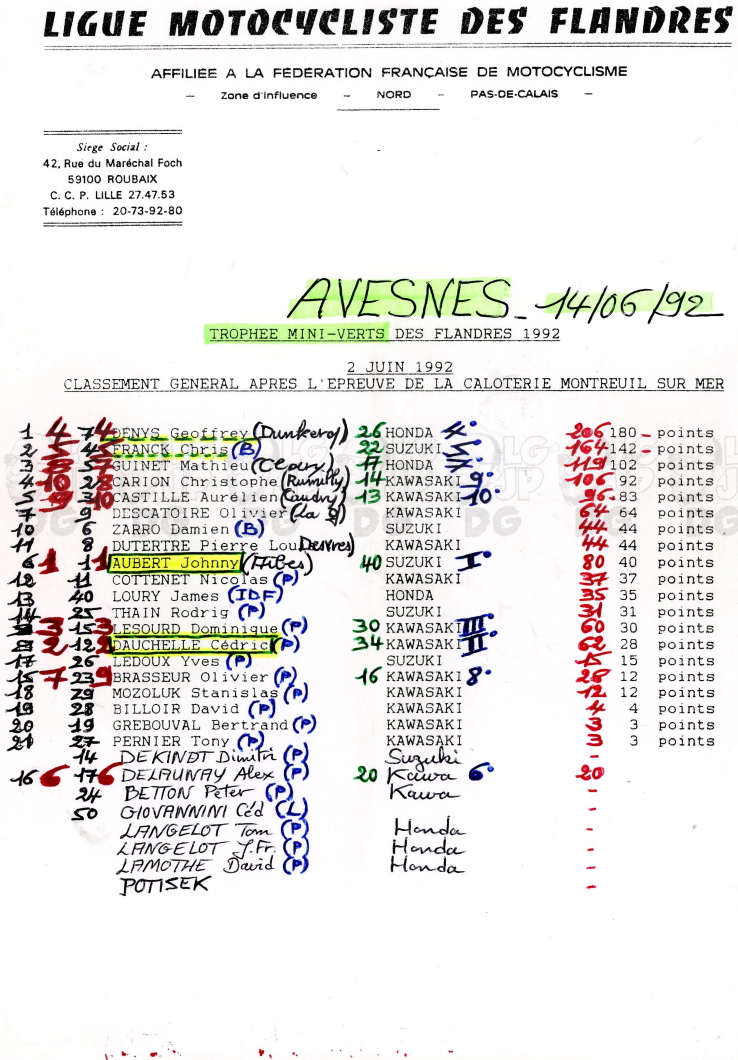 LIGUE MOTOCYCLISTE DES FLANDRES
AFFILIÉE A LA FÉDÉRATION FRANÇAISE DE MOTOCYCLISME
— Zone d'influence — NORD — PAS-DE-CALAIS —
Siege Social :
42, Rue du Maréchal Foch
59100 ROUBAIX
C. C. P. LILLE 27.47.53
Téléphone : 20-73-92-80
AVESNES_ 14/06/92
TROPHEE MINI-VERTS DES FLANDRES 1992
2 JUIN 1992
CLASSEMENT GENERAL APRES L'EPREUVE DE LA CALOTERIE MONTREUIL SUR MER
1 4 7 4 DENYS Geoffrey 26 HONDA 4° 206 180 - points
2 5 4 5 FRANCK Chris (B) 22 SUZUKI 5° 164 142 - points
3 5 GUINET Mathieu 17 HONDA 119 102 points
4 10 28 CARION Christophe (Rumilly) 14 KAWASAKI 9° 106 92 points
5 9 3 10 CASTILLE Aurélien (Caudry) 13 KAWASAKI 10° 96 - 83 points
7 9 DESCATOIRE Olivier KAWASAKI 64 64 points
10 6 ZARRO Damien (B) SUZUKI 44 44 points
11 8 DUTERTRE Pierre Lou (Desvres) KAWASAKI 44 44 points
6 1 1 1 AUBERT Johnny (Ribes) 40 SUZUKI I° 80 40 points
12 11 COTTENET Nicolas (P) KAWASAKI 37 37 points
13 40 LOURY James (IDF) HONDA 35 35 points
14 25 THAIN Rodrig (P) SUZUKI 31 31 points
3 15 3 LESOURD Dominique (P) 30 KAWASAKI III° 60 30 points
2 12 2 DAUCHELLE Cédric (P) 34 KAWASAKI II° 62 28 points
17 26 LEDOUX Yves (P) SUZUKI 15 15 points
15 7 23 9 BRASSEUR Olivier (P) 16 KAWASAKI 8° 28 12 points
18 29 MOZOLUK Stanislas (P) KAWASAKI 12 12 points
19 28 BILLOIR David (P) KAWASAKI 4 4 points
20 19 GREBOUVAL Bertrand (P) KAWASAKI 3 3 points
21 27 PERNIER Tony (P) KAWASAKI 3 3 points
14 DEKINDT Dimitri (P) Suzuki -
16 6 17 6 DELAUNAY Alex (P) 20 Kawa 6° 20
24 BETTON Peter (P) Kawa -
50 GIOVANNINI Céd (L) -
LANGELOT Tom (P) Honda -
LANGELOT J.Fr. (P) Honda -
LAMOTHE David (P) Honda -
POTISEK -